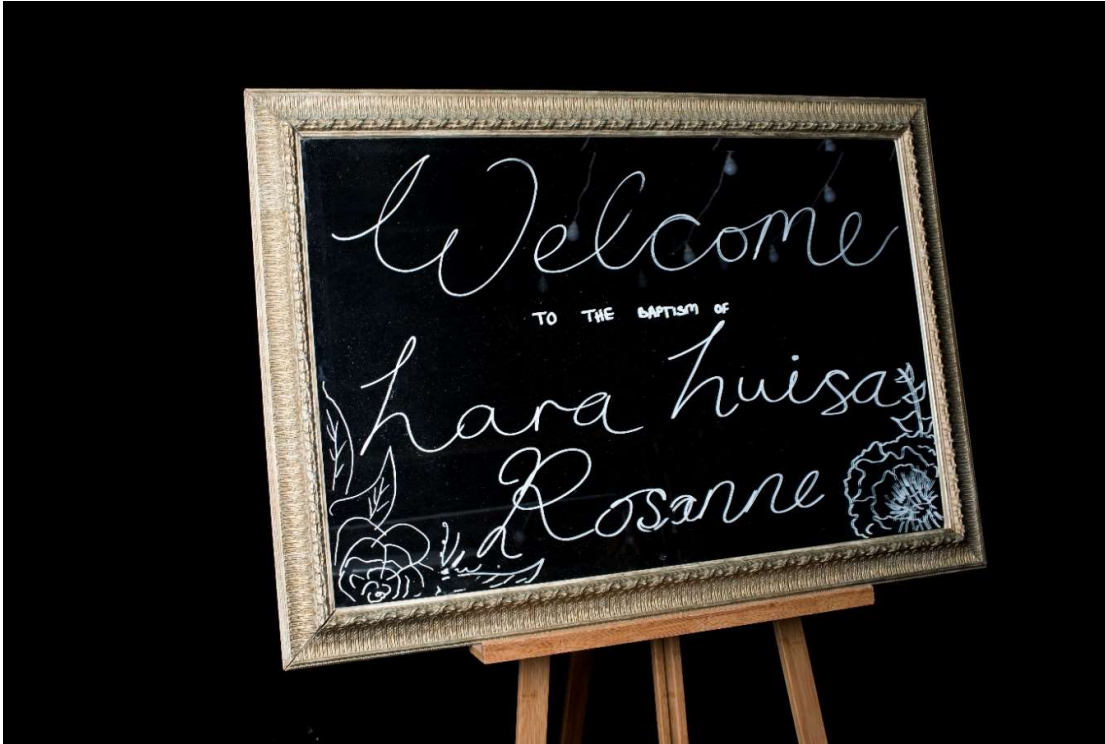 Welcome
TO THE BAPTISM OF
Lara Luisa
Rosanne